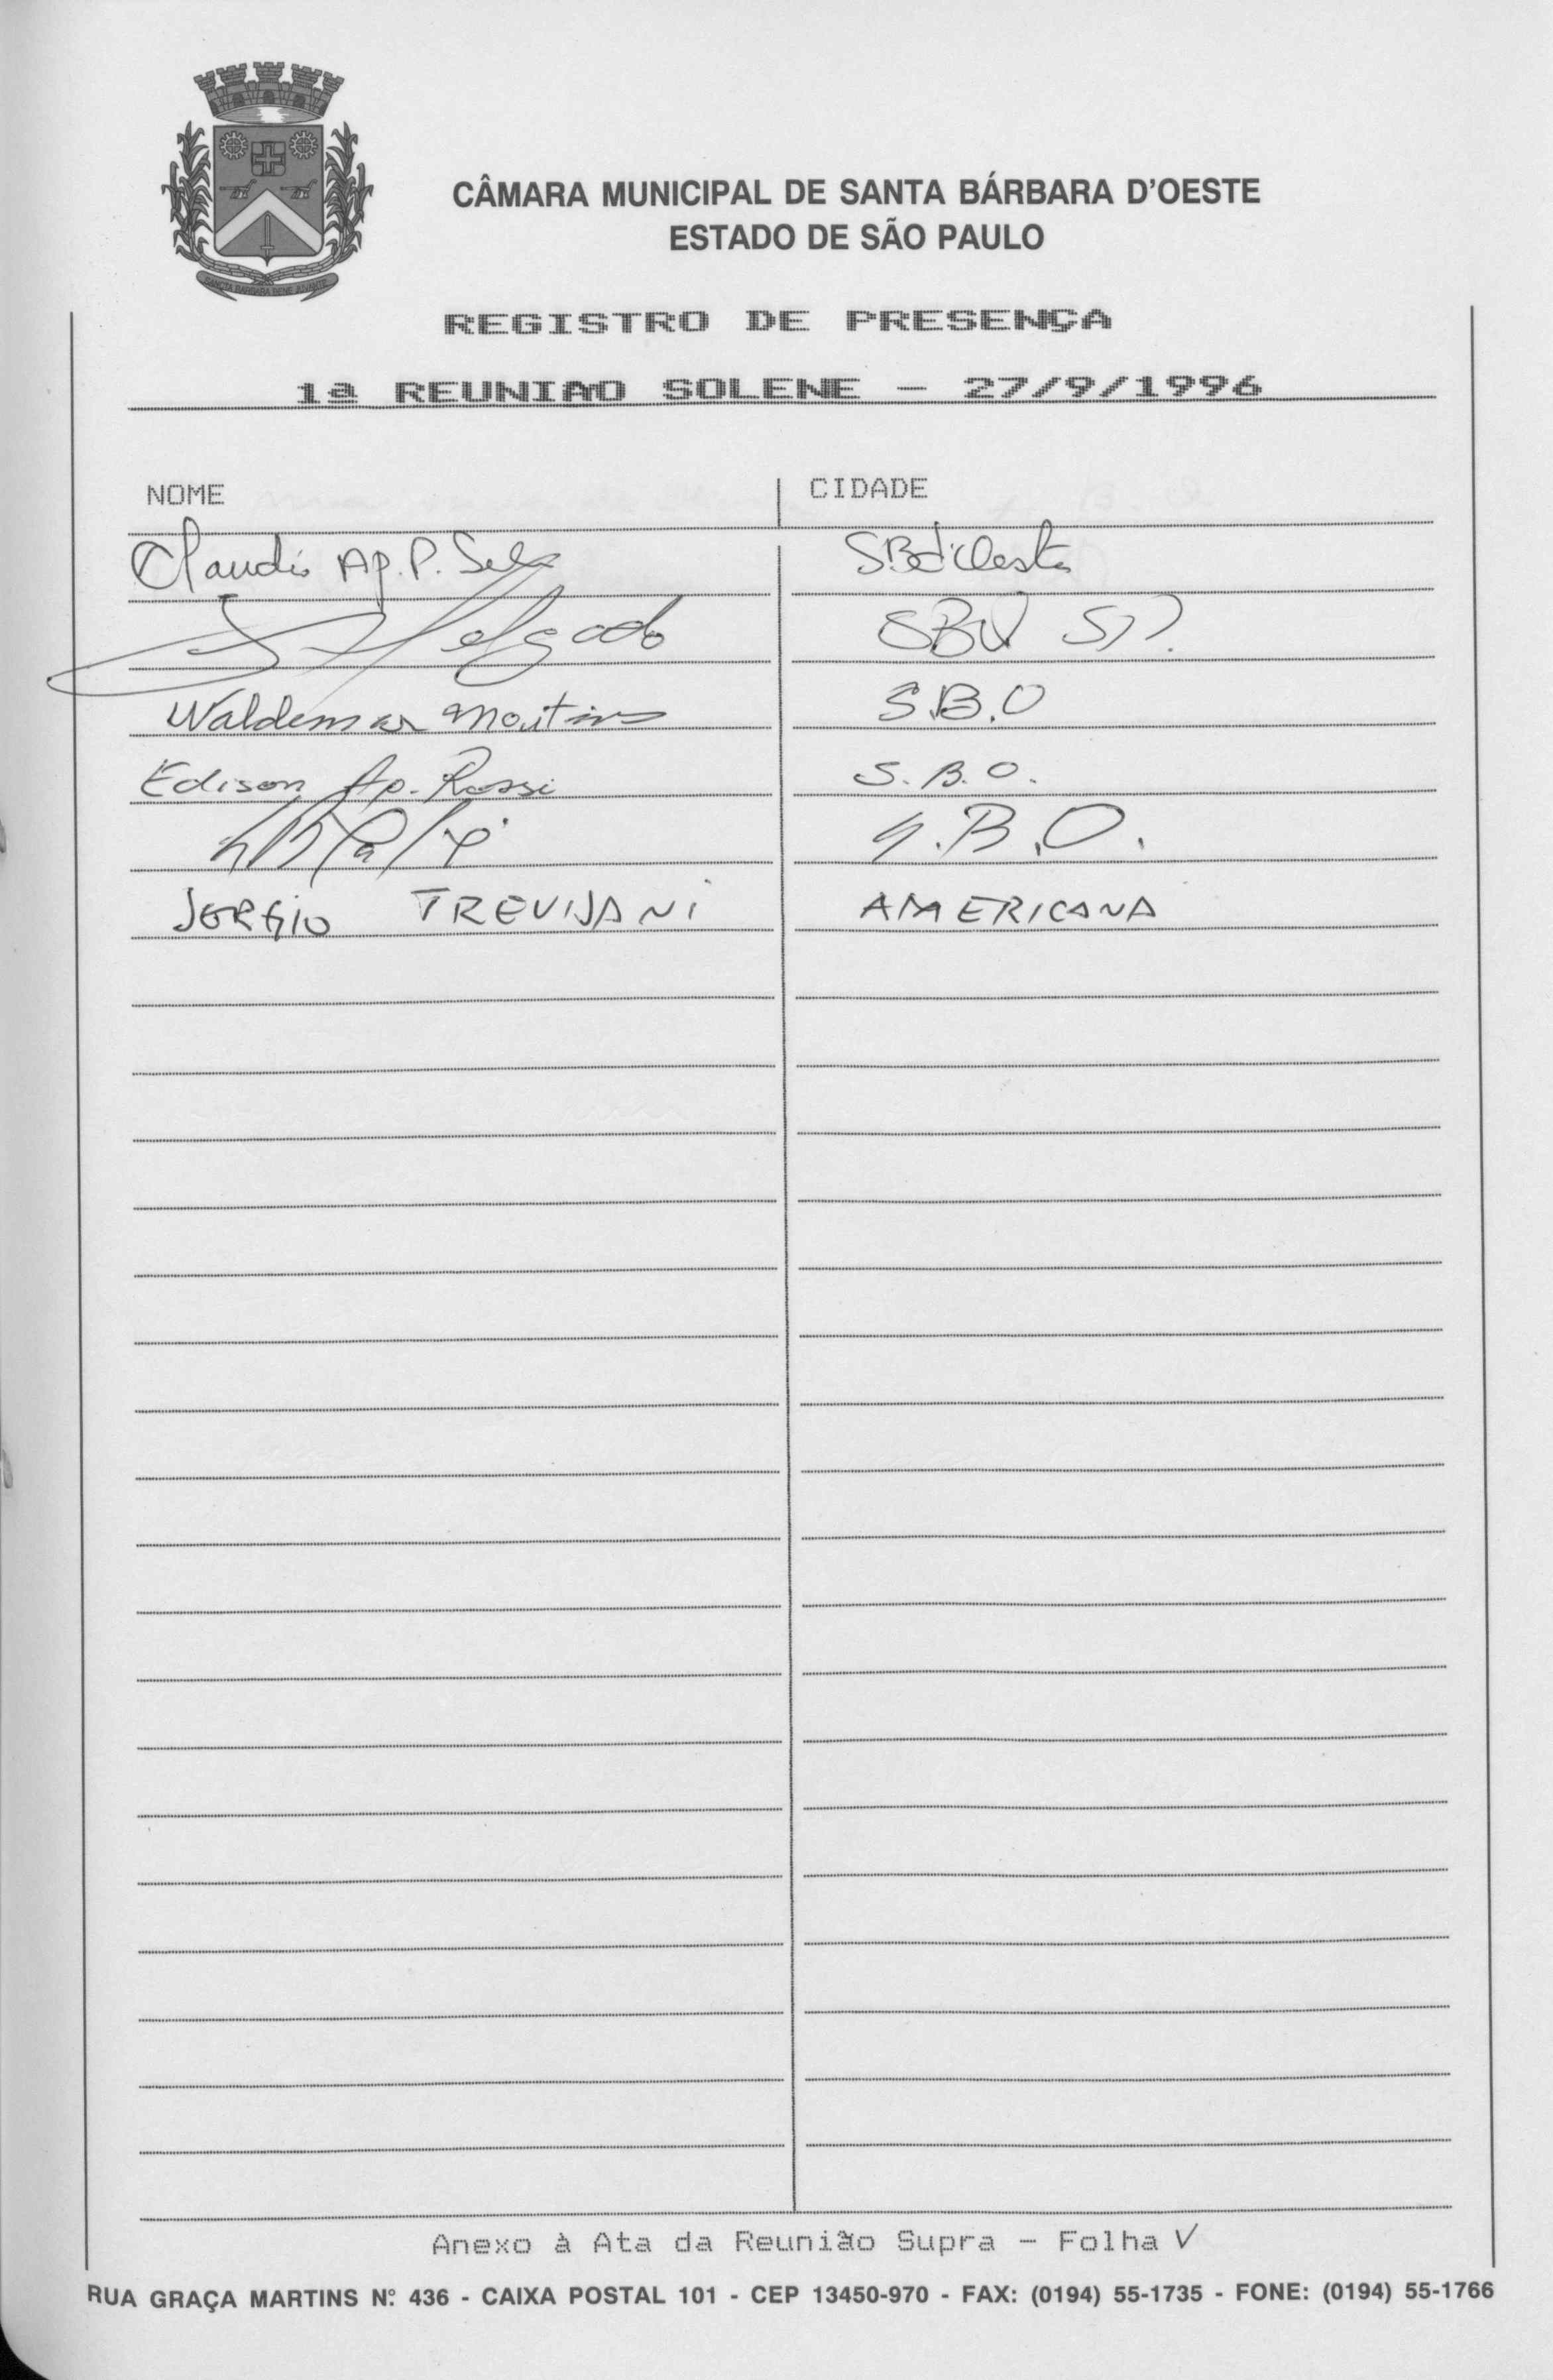 CÂMARA MUNICIPAL DE SANTA BÁRBARA D'OESTE
ESTADO DE SÃO PAULO
REGISTRO DE PRESENÇA
1ª REUNIÃO SOLENE - 27/9/1996
NOME CIDADE
Claudio Ap. P. SBd'Oeste
Salgado
Waldemar Martins S.B.O
Edison Ap. Rossi S.B.O.
S.B.O.
SERGIO TREVISANI AMERICANA
Anexo à Ata da Reunião Supra - Folha V
RUA GRAÇA MARTINS Nº 436 - CAIXA POSTAL 101 - CEP 13450-970 - FAX: (0194) 55-1735 - FONE: (0194) 55-1766